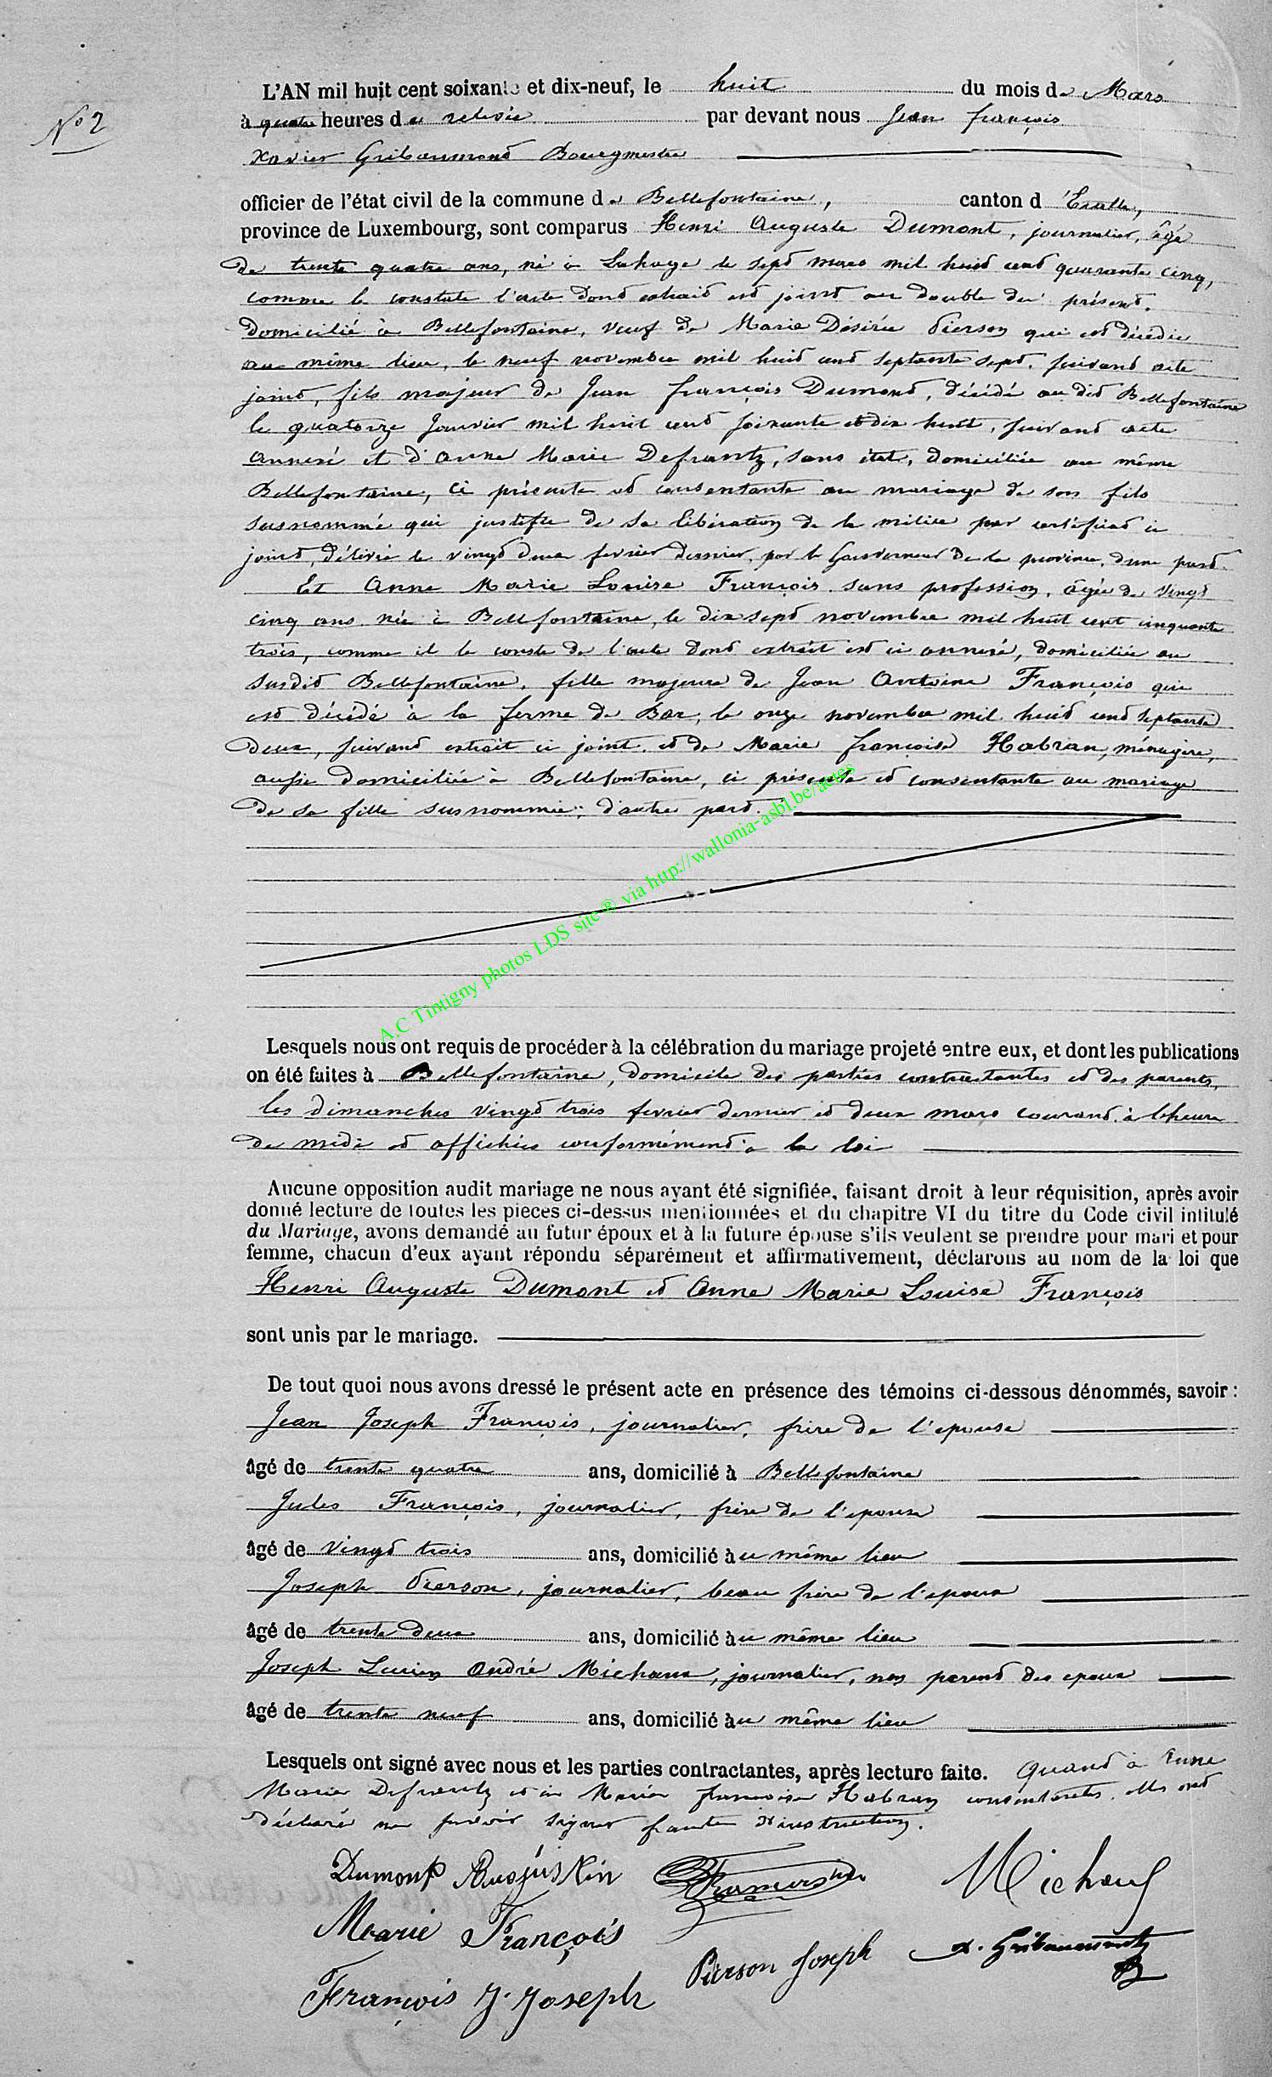 N° 2
L'AN mil huit cent soixante et dix-neuf, le huit du mois de Mars
à quatre heures de relevée par devant nous Jean françois
Xavier Gribaumont Bourgmestre
officier de l'état civil de la commune de Bellefontaine, canton d'Etalle,
province de Luxembourg, sont comparus Henri Auguste Dumont, journalier, âgé
de trente quatre ans, né à Lahage le sept mars mil huit cent quarante cinq,
comme le constate l'acte dont extrait est joint au double du présent.
Domicilié à Bellefontaine, veuf de Marie Désirée Pierson qui est décédée
au même lieu, le neuf novembre mil huit cent septante sept, suivant acte
joint, fils majeur de Jean françois Dumont, décédé au dit Bellefontaine
le quatorze Janvier mil huit cent soixante et dix huit, suivant acte
annexé et d'Anne Marie Defrantz, sans état, domiciliée au même
Bellefontaine, ci présente et consentante au mariage de son fils
susnommé qui justifie de sa libération de la milice par certificat ci
joint, délivré le vingt deux fevrier dernier, par le Gouverneur de la province, d'une part.
Et Anne Marie Louise François sans profession, âgée de vingt
cinq ans née à Bellefontaine, le dix sept novembre mil huit cent cinquante
trois, comme il le conste de l'acte dont extrait est ci annexé, domiciliée au
susdit Bellefontaine, fille majeure de Jean Antoine François qui
est décédé à la ferme de Bar, le onze novembre mil huit cent septante
deux, suivant extrait ci joint et de Marie françoise Habran, ménagère,
aussi domiciliée à Bellefontaine, ci présente et consentante au mariage
de sa fille susnommée; d'autre part.
A.C Tintigny photos LDS site ® via http://wallonia-asbl.be/actes
Lesquels nous ont requis de procéder à la célébration du mariage projeté entre eux, et dont les publications
on été faites à Bellefontaine, domicile des parties contractantes et des parents,
les dimanches vingt trois fevrier dernier et deux mars courant à l'heure
de midi et affichées conformément à la loi
Aucune opposition audit mariage ne nous ayant été signifiée, faisant droit à leur réquisition, après avoir
donné lecture de toutes les pieces ci-dessus mentionnées et du chapitre VI du titre du Code civil intitulé
du Mariage, avons demandé au futur époux et à la future épouse s'ils veulent se prendre pour mari et pour
femme, chacun d'eux ayant répondu séparément et affirmativement, déclarons au nom de la loi que
Henri Auguste Dumont et Anne Marie Louise François
sont unis par le mariage.
De tout quoi nous avons dressé le présent acte en présence des témoins ci-dessous dénommés, savoir :
Jean Joseph François, journalier, frère de l'epouse
âgé de trente quatre ans, domicilié à Bellefontaine
Jules François, journalier, frère de l'epouse
âgé de vingt trois ans, domicilié au même lieu
Joseph Pierson, journalier, beau frère de l'epoux
âgé de trente deux ans, domicilié au même lieu
Joseph Lucien André Michaux, journalier, non parent des epoux
âgé de trente neuf ans, domicilié au même lieu
Lesquels ont signé avec nous et les parties contractantes, après lecture faite. Quand à Anne
Marie Defrantz et à Marie françoise Habran consentantes, elles ont
déclaré ne pouvoir signer faute d'instruction.
Dumont Augustin François Michaux
Marie François
Pierson Joseph X. Gribaumont
François J. Joseph